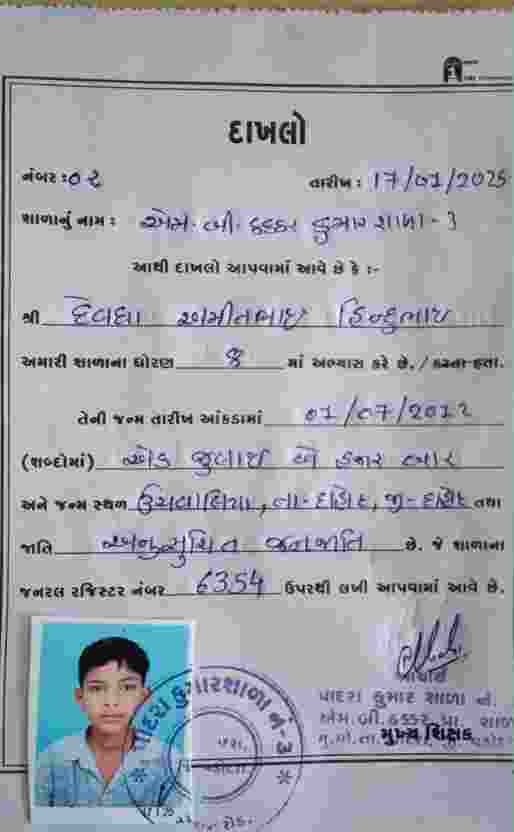 દાખલો
નંબર : ૦૨ તારીખ : 17/01/2025
શાળાનું નામ : એમ.બી. ઠક્કર કુમાર શાળા - ૩
આથી દાખલો આપવામાં આવે છે કે :-
શ્રી દેવધા અમીતભાઇ હિન્દુભાઇ
અમારી શાળાના ધોરણ ૭ માં અભ્યાસ કરે છે./ કરતા હતા.
તેની જન્મ તારીખ આંકડામાં 01/07/2012
(શબ્દોમાં) એક જુલાઇ બે હજાર બાર
અને જન્મ સ્થળ ઉસવાહિયા, તા-દાહોદ, જી-દાહોદ તથા
જાતિ અનુસુચિત જનજાતિ છે. જે શાળાના
જનરલ રજિસ્ટર નંબર 6354 ઉપરથી લખી આપવામાં આવે છે.
આચાર્ય
પાદરા કુમાર શાળા નં.
એમ.બી.ઠક્કર પ્રા. શાળ
મુ.પો.તા. મુખ્ય શિક્ષક
પાદરા કુમારશાળા નં-૩